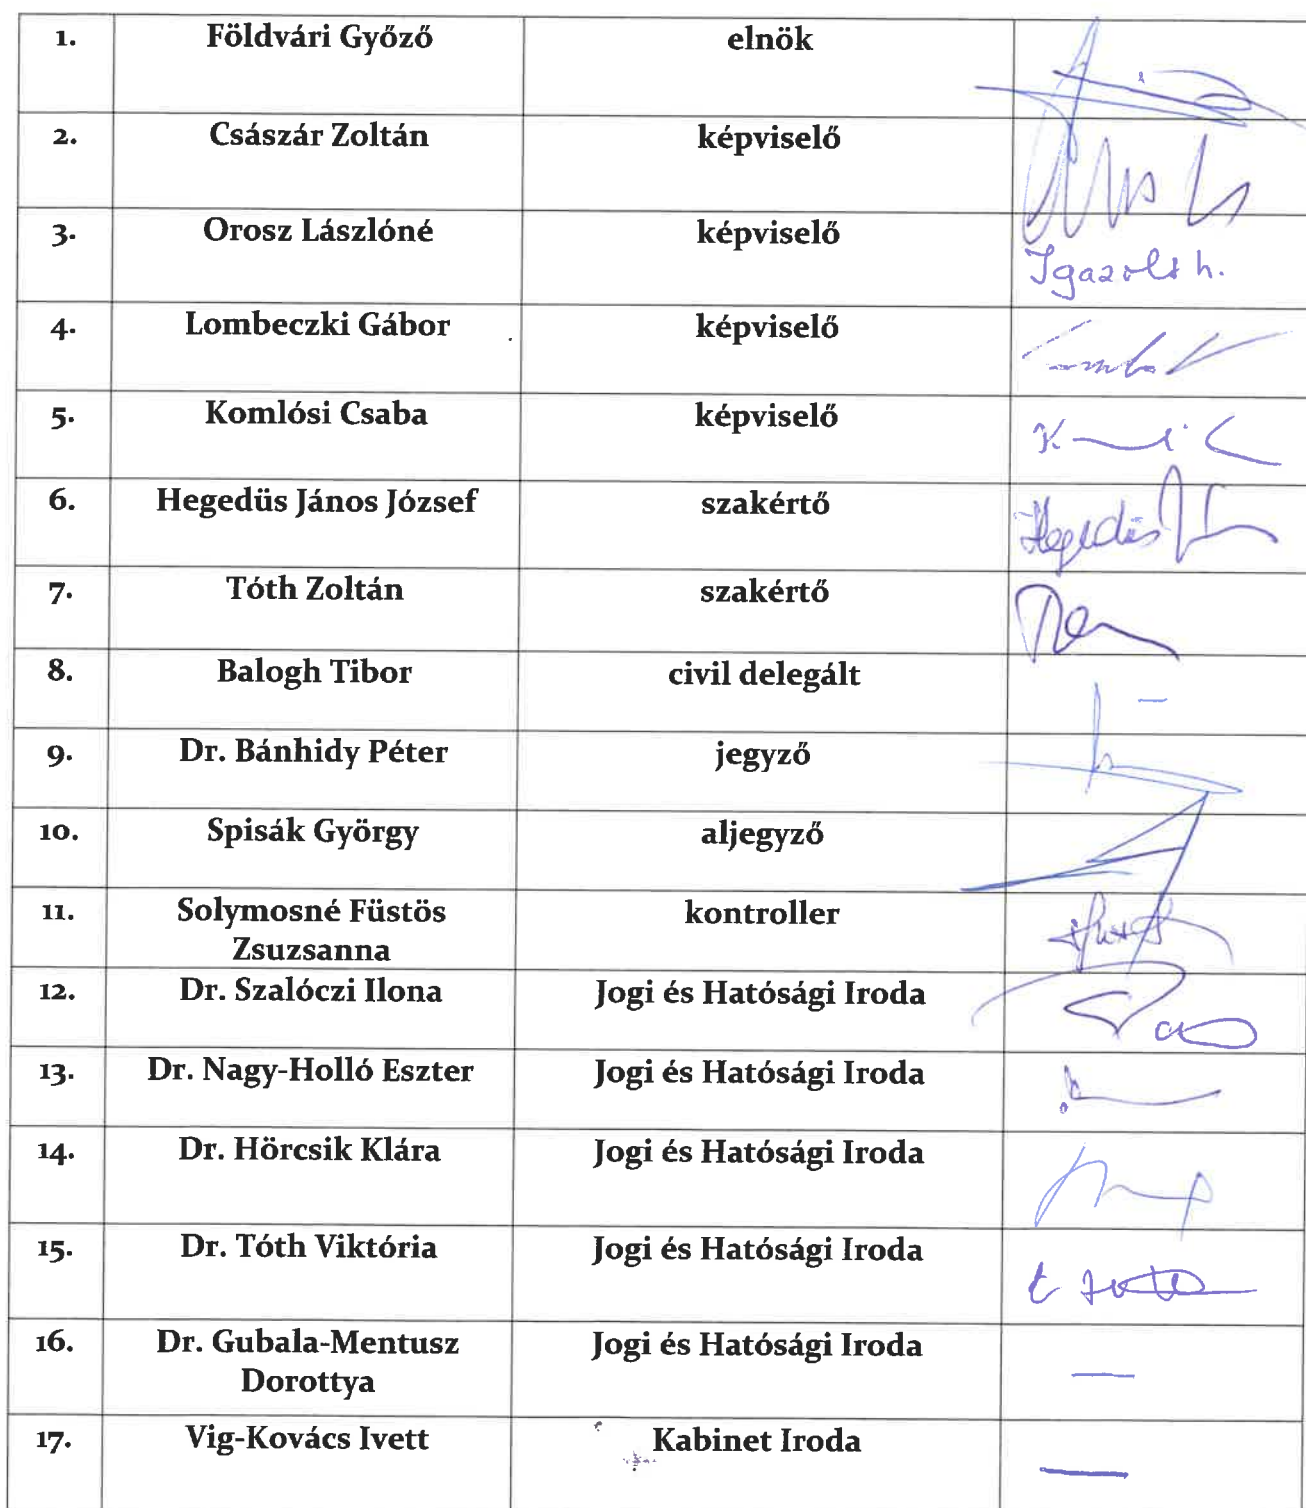 1. Földvári Győző elnök
2. Császár Zoltán képviselő
3. Orosz Lászlóné képviselő Igazolt h.
4. Lombeczki Gábor képviselő
5. Komlósi Csaba képviselő
6. Hegedüs János József szakértő Hegedüs
7. Tóth Zoltán szakértő
8. Balogh Tibor civil delegált —
9. Dr. Bánhidy Péter jegyző
10. Spisák György aljegyző
11. Solymosné Füstös kontroller
Zsuzsanna
12. Dr. Szalóczi Ilona Jogi és Hatósági Iroda
13. Dr. Nagy-Holló Eszter Jogi és Hatósági Iroda
14. Dr. Hörcsik Klára Jogi és Hatósági Iroda
15. Dr. Tóth Viktória Jogi és Hatósági Iroda
16. Dr. Gubala-Mentusz Jogi és Hatósági Iroda —
Dorottya
17. Vig-Kovács Ivett Kabinet Iroda —